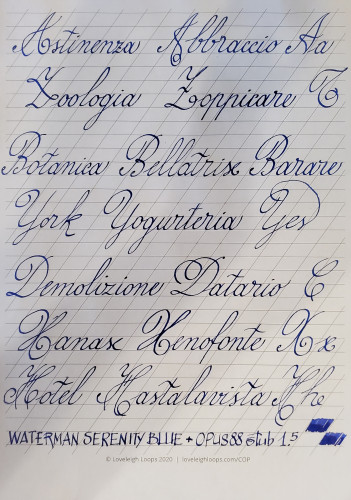 Astinenza Abbraccio Aa
Zoologia Zoppicare
Botanica Bellatrix Barare
York Yogurteria Yes
Demolizione Datario C
Xanax Xenofonte Xx
Hotel Hastalavista Hh
WATERMAN SERENITY BLUE + OPUS 88 stub 1.5
© Loveleigh Loops 2020 | loveleighloops.com/COP